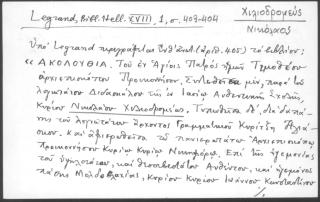 Legrand, Bibl. Hell. XVIII, 1, σ. 403-404
Χιλιοδρομεύς
Νικόλαος
Ὑπὸ Legrand περιγράφεται ἐνθ' ἀνωτ. (ἀριθ. 405) τὸ βιβλίον:
« ΑΚΟΛΟΥΘΙΑ. Τοῦ ἐν Ἁγίοις Πατρὸς ἡμῶν Τιμοθέου
ἀρχιεπισκόπου Προικοννήσου, Συντεθεῖσα μὲν, παρὰ τοῦ
λογιωτάτου Διδασκάλου τῆς ἐν Ἰασίῳ Αὐθεντικῆς Σχολῆς,
Κυρίου Νικολάου Χιλιοδρομέως. Τυπωθεῖσα δ', διὰ δαπάνης
τοῦ λογιωτάτου ἄρχοντος Γραμματικοῦ Κυρίτζη
Καὶ ἀφιερωθεῖσα τῷ πανιερωτάτῳ Ἀρχιεπισκόπῳ
Προικοννήσου Κυρίῳ Κυρίῳ Νικηφόρῳ. Ἐπὶ τῆς ἡγεμονίας
τοῦ ὑψηλοτάτου, καὶ θεοσεβεστάτου Αὐθέντου, καὶ ἡγεμόνος
πάσης Μολδοβλαχίας, Κυρίου Κυρίου Ἰωάννου Κωνσταντίνου